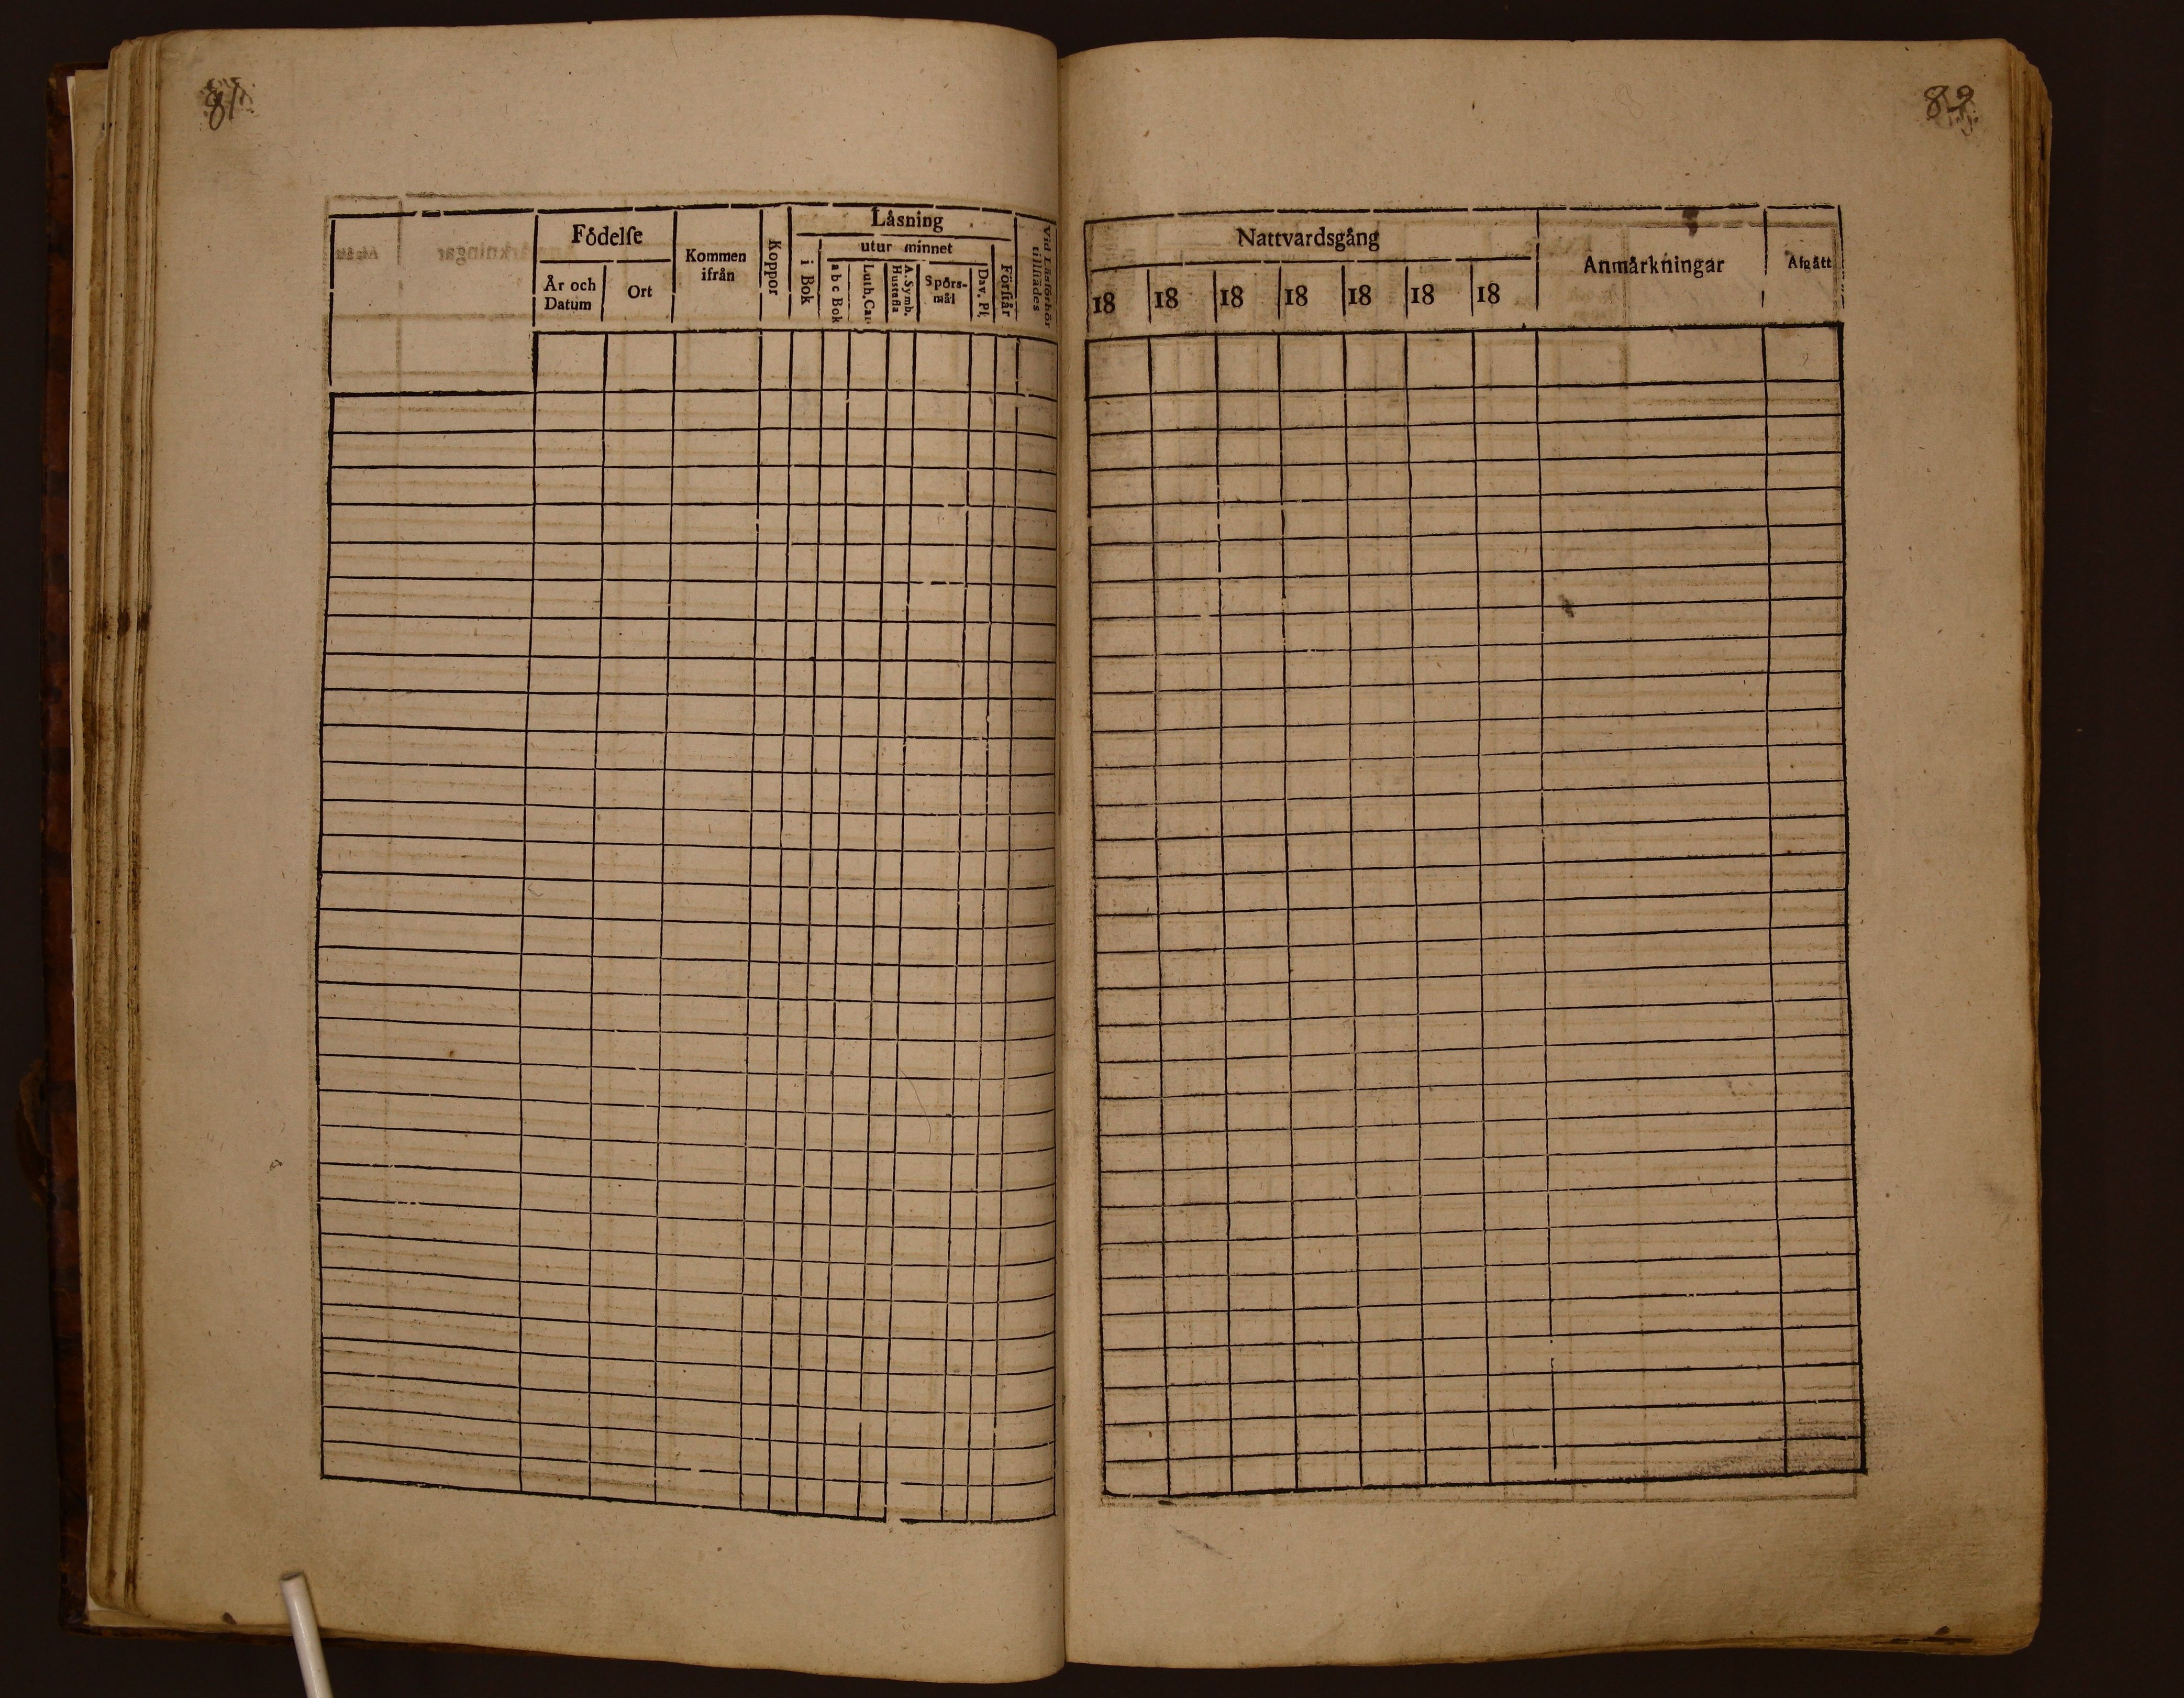 81
Födelſe
År och Datum
Ort
Kommen ifrån
Koppor
Läsning
i Bok
utur minnet
a b c Bok
Luth. Cat.
A. Symb. Hustafla
Spörs-mål
Dav. Pſ.
Förſtår
Vid Läsförhör tillſtädes
82
Nattvardsgång
18 18 18 18 18 18 18
Anmärkningar
Afgått